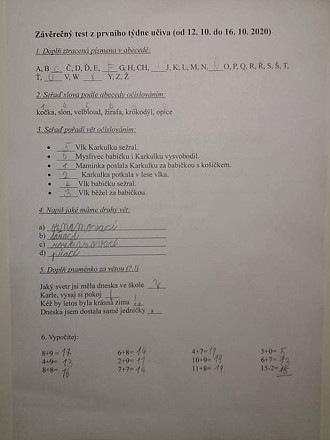 Závěrečný test z prvního týdne učiva (od 12. 10. do 16. 10. 2020)
1. Doplň ztracená písmena v abecedě:
A, B, C, Č, D, Ď, E, F, G, H, CH, __ J, K, L, M, N, __ O, P, Q, R, Ř, S, Š, T,
Ť, U, V, W __ Y, Z, Ž
2. Seřaď slova podle abecedy očíslováním:
kočka, slon, velbloud, žirafa, krokodýl, opice
3. Seřaď pořadí vět očíslováním:
• 5 Vlk Karkulku sežral.
• 6 Myslivec babičku i Karkulku vysvobodil.
• 1 Maminka poslala Karkulku za babičkou s košíčkem.
• 2 Karkulka potkala v lese vlka.
• 4 Vlk babičku sežral.
• 3 Vlk běžel za babičkou.
4. Napiš jaké máme druhy vět.
a) oznamovací
b) tázací
c) rozkazovací
d) přací
5. Doplň znaménko za větou (? . !)
Jaký svetr jsi měla dneska ve škole ?
Karle, vysaj si pokoj !
Kéž by letos byla krásná zima !
Dneska jsem dostala samé jedničky .
6. Vypočítej:
8+9= 17 6+8= 14 4+7= 5+0= 5
4+9= 13 2+9= 11 10+9= 19 6+7= 13
8+8= 16 7+7= 14 11+8= 19 15-2=